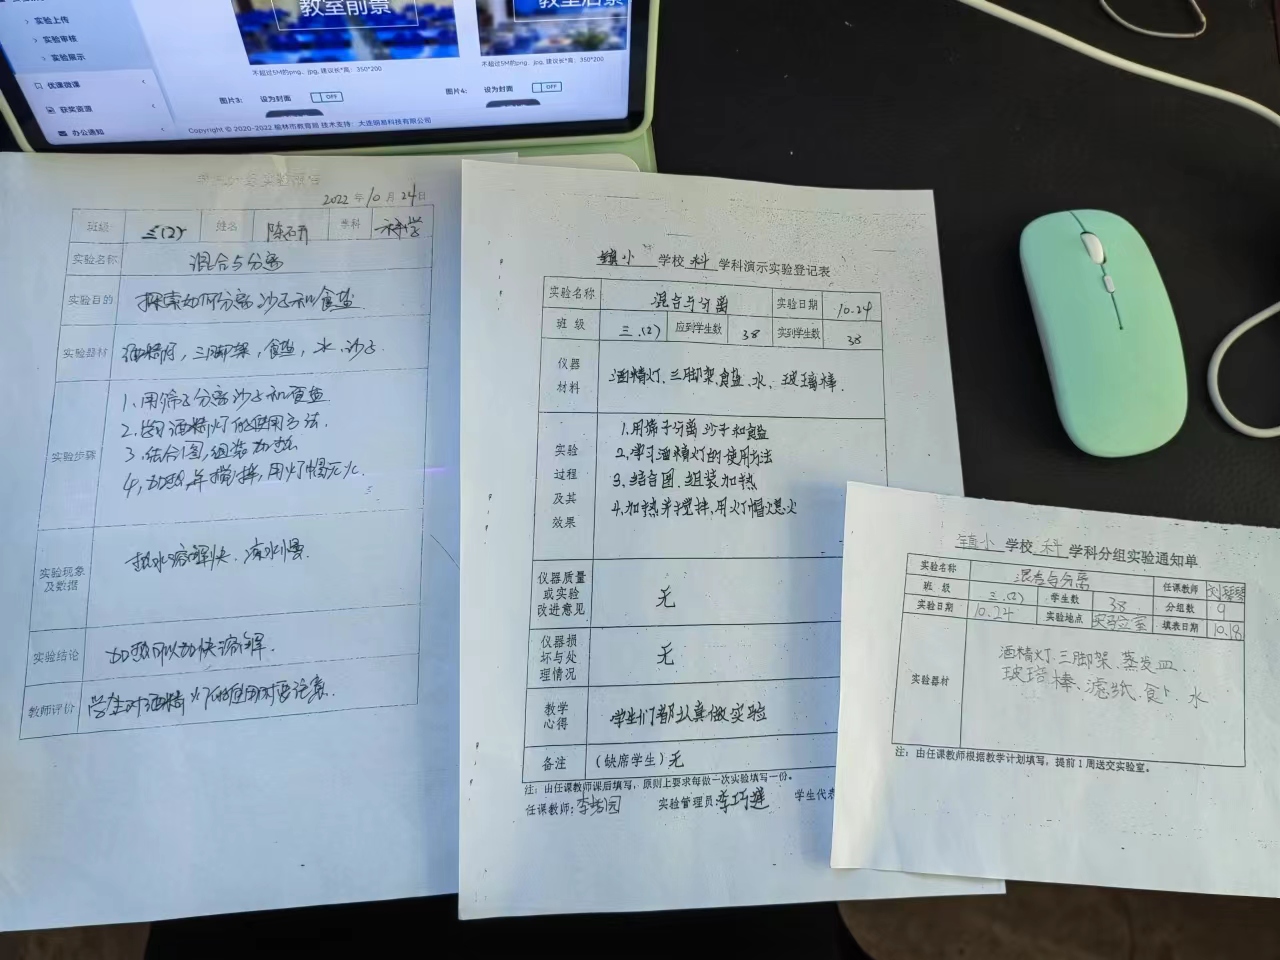 教室前景
教室后景
实验上传
实验审核
实验展示
优课微课
获奖资源
办公通知
不超过5M的png、jpg, 建议长*高: 350*200
不超过5M的png、jpg, 建议长*高: 350*200
图片3: 设为封面 OFF
图片4: 设为封面 OFF
Copyright © 2020-2022 榆林市教育局 技术支持: 大连锦易科技有限公司
2022年10月24日
班级 三(2) 姓名 学科 科学
实验名称 混合与分离
实验目的 探索如何分离沙子和食盐
实验器材 酒精灯, 三脚架, 食盐, 水, 沙子
实验步骤
1、用筛子分离沙子和食盐
2、学习酒精灯的使用方法.
3、结合图,组装加热
4、加热,并搅拌,用灯帽灭火.
实验现象及数据
热水溶解快、凉水慢
实验结论 加热可以加快溶解.
教师评价 学生对酒精灯的使用时要注意.
镇小 学校 科 学科演示实验登记表
实验名称 混合与分离 实验日期 10.24
班 级 三.(2) 应到学生数 38 实到学生数 38
仪器材料
酒精灯、三脚架、食盐、水、玻璃棒.
实验过程及其效果
1.用筛子分离沙子和食盐
2、学习酒精灯的使用方法
3、结合图、组装加热
4.加热并搅拌、用灯帽熄火
仪器质量或实验改进意见 无
仪器损坏与处理情况 无
教学心得 学生们都认真做实验
备注 (缺席学生)无
注: 由任课教师课后填写, 原则上要求每做一次实验填写一份。
任课教师: 实验管理员: 学生代表
镇小 学校 科 学科分组实验通知单
实验名称 混合与分离 任课教师 刘琴琴
班 级 三.(2) 学生数 38 分组数 9
实验日期 10.24 实验地点 实验室 填表日期 10.18
实验器材
酒精灯、三脚架、蒸发皿、
玻璃棒、滤纸、食、水
注: 由任课教师根据教学计划填写, 提前1周送交实验室。